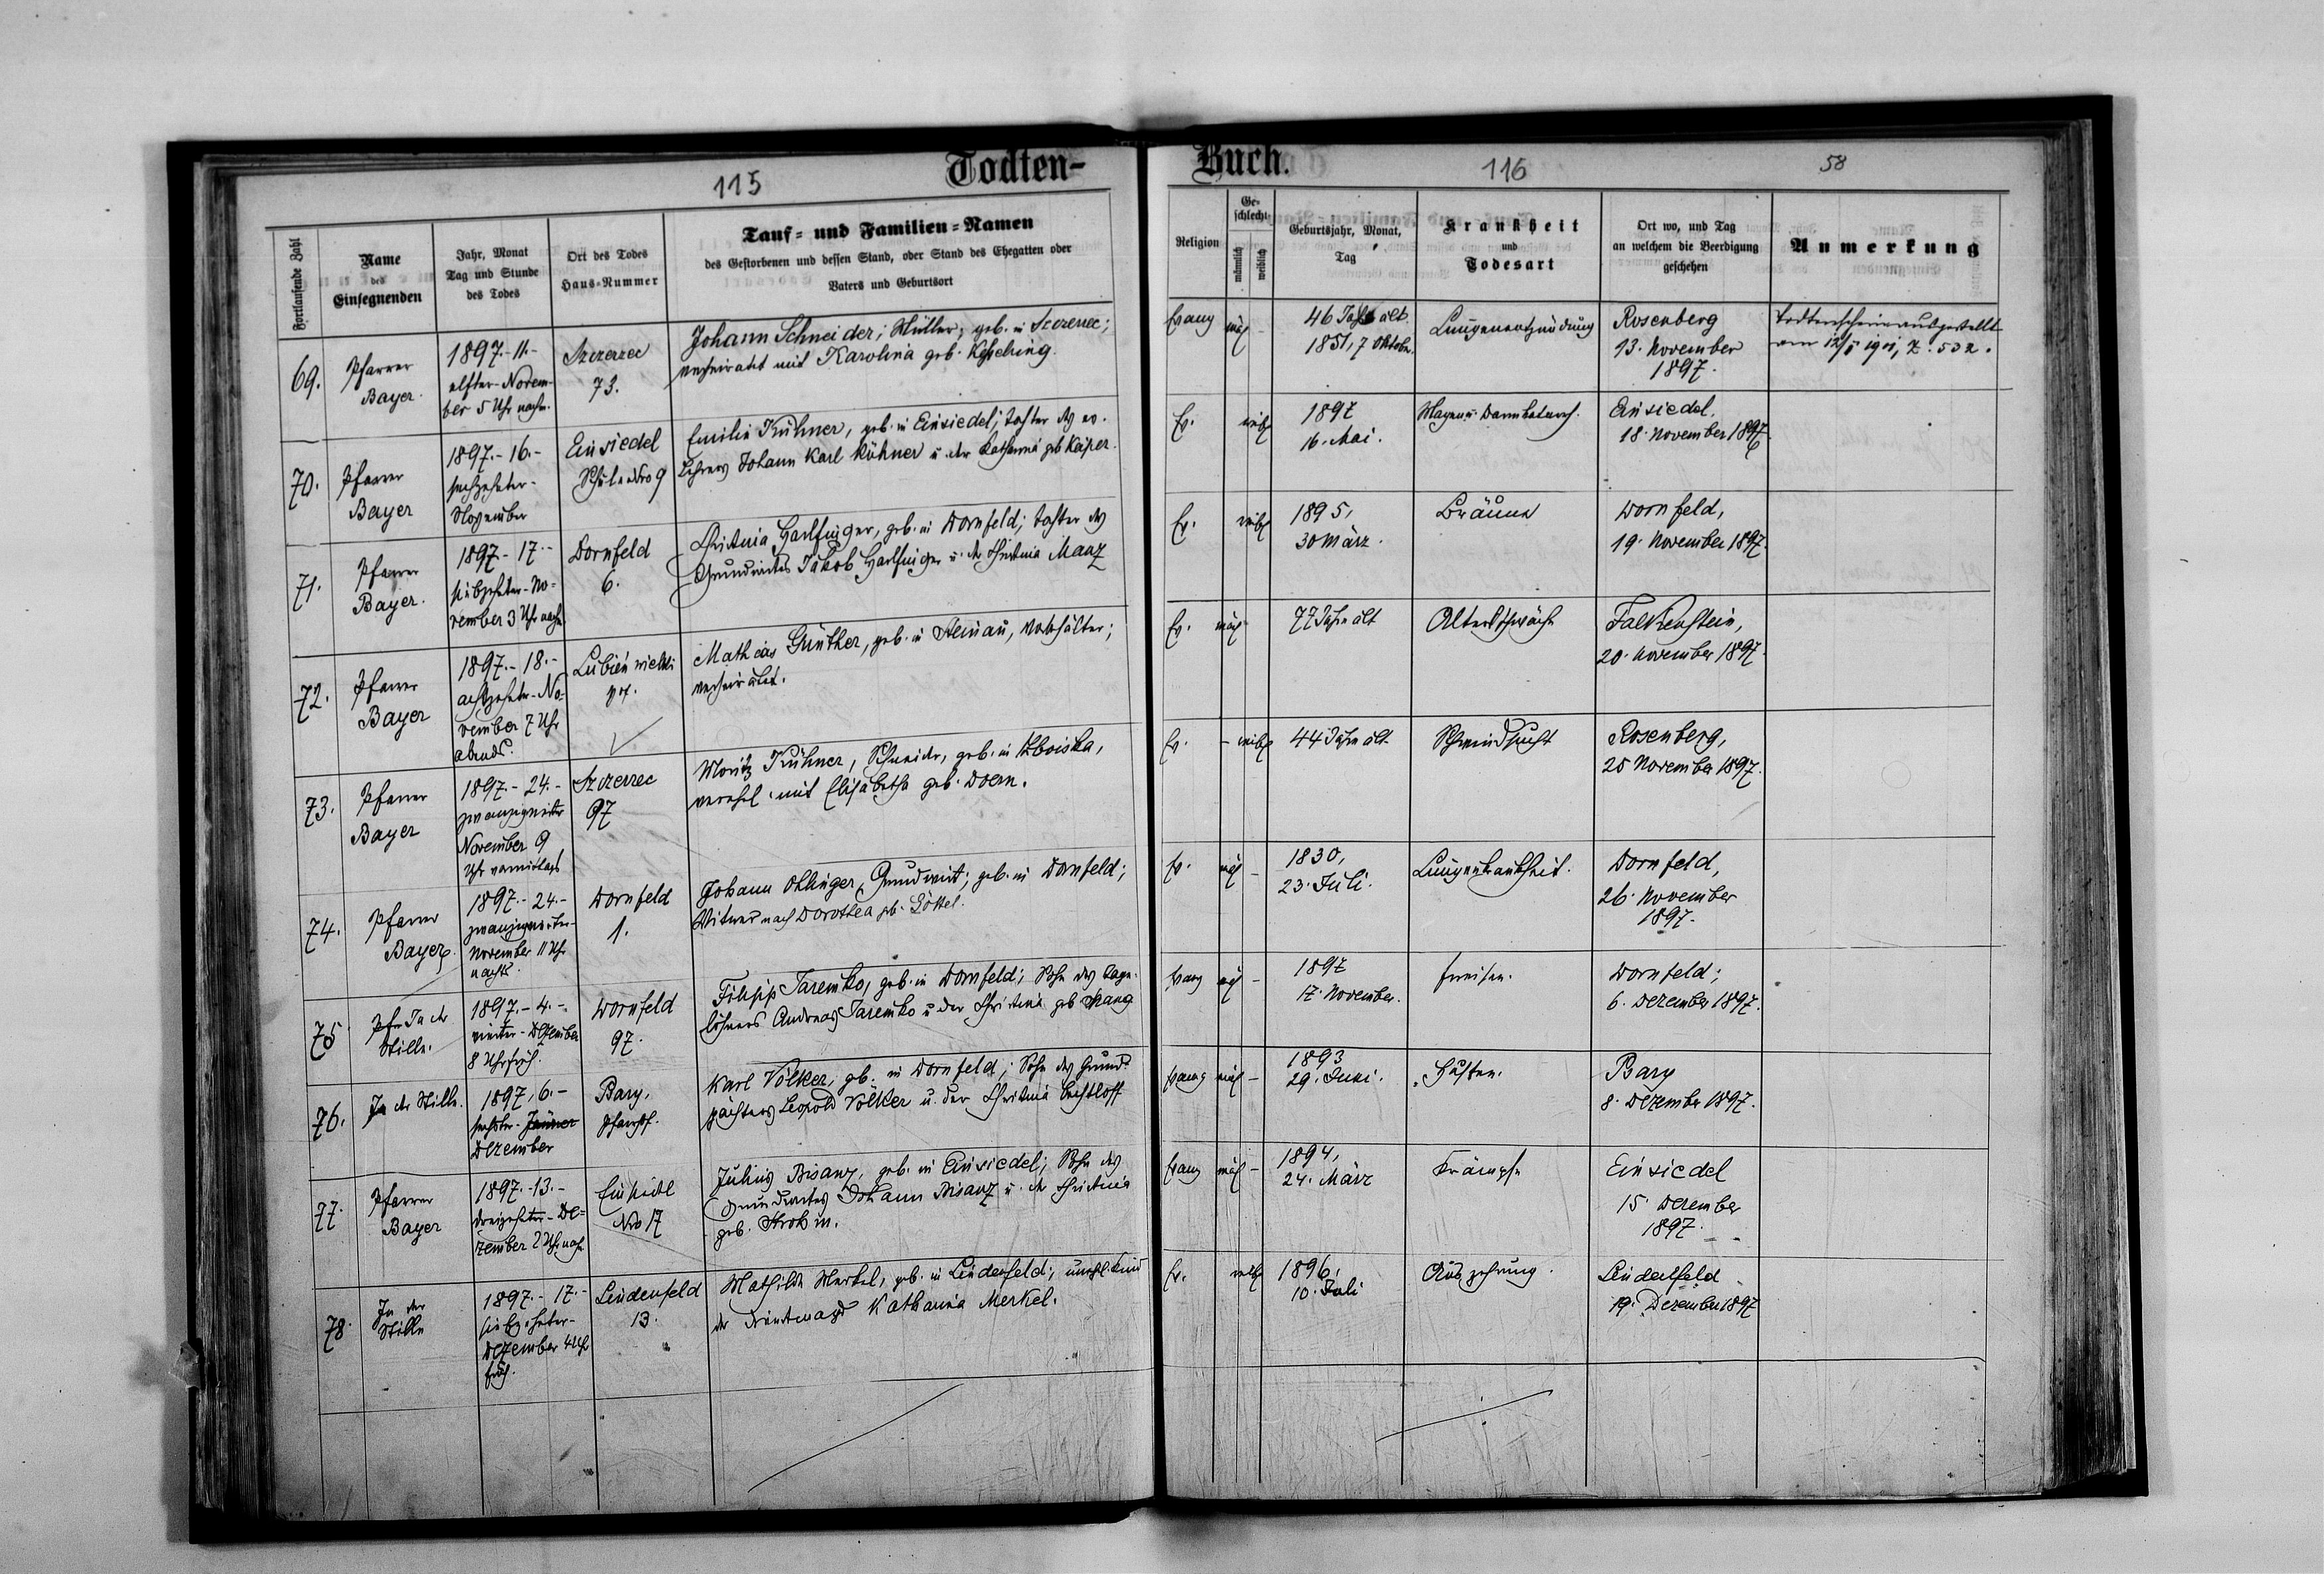 Todten-
Buch.
115
116
58
Fortlaufende Zahl
Name
des
Einsegnenden
Jahr, Monat
Tag und Stunde
des Todes
Ort des Todes
Haus-Nummer
Tauf- und Familien-Namen
des Gestorbenen und dessen Stand, oder Stand des Ehegatten oder
Vaters und Geburtsort
Religion
Ge-
schlecht
männlich
weiblich
Geburtsjahr, Monat,
Tag
Krankheit
und
Todesart
Ort wo, und Tag
an welchem die Beerdigung
geschehen
Anmerkung
69.
Pfarrer
Bayer.
1897.-11.-
elfter-Novem-
ber 5 Uhr nachm.
Szczerzec
73.
Johann Schneider; Müller; geb. in
verheiratet mit Karolina geb. Kesselring.
Evang
mäl
46 Jahre alt.
1851, 7 Oktobr.
Lungenentzündung
Rosenberg
13. November
1897.
Todtenschein ausgestellt
am 12/I 1901, Z. 532.
70.
Pfarrer
Bayer
1897.-16.-
sechzehnter-
November
Einsiedel
Schule Nro 9
Emilie Kühner, geb. in Einsiedel; Tochter des ev.
Lehrers Johann Karl Kühner u. der Katharina geb Kaiper.
Ev.
weibl
1897
16. Mai.
Magen u. Darmkatarrh.
Einsiedel,
18. November 1897
71.
Pfarrer
Bayer.
1897-17.-
siebzehnter-No-
vember 3 Uhr nachm
Dornfeld
6.
Christina Harlfinger, geb. in Dornfeld; Tochter des
Grundwirtes Jakob Harlfinger u. der Christina Manz
Ev.
weibl
1895,
30 März.
Bräune
Dornfeld,
19. November 1897.
72.
Pfarrer
Bayer
1897.-18.-
achtzehnter-No-
vember 7 Uhr
abends.
Lubień wielki
Mathias Günther, geb. in Steinau,
verheiratet.
Ev.
mäl
77 Jahre alt
Altersschwäche
Falkenstein,
20. November 1897.
73.
Pfarrer
Bayer
1897.-24.-
November 9
Uhr vormittags
Szczerzec
97
Moritz Kühner, Schneider, geb. in Kłoiska,
verehel. mit Elisabetha geb. Doern.
Ev.
- weibl
44 Jahre alt
Schwindsucht
Rosenberg,
25 November 1897.
74.
Pfarrer
Bayer
1897.-24.-
November 11 Uhr
nachts.
Dornfeld
1.
Johann Ottinger, Grundwirt; geb. in Dornfeld;
Witwer nach Dorothea geb.
Ev.
mäl -
1830,
23. Juli.
Lungenkrankheit.
Dornfeld,
26. November
1897.
75
In der
Stille.
1897.-4.-
vierter-Dezember
8 Uhr früh.
Dornfeld
97.
Filipp Jaremko, geb. in Dornfeld; Sohn des Tage-
löhners Andreas Jaremko u der Christina geb Mang
Evang
mäl -
1897
17. November.
Freisen.
Dornfeld;
6. Dezember 1897.
76.
In der Stille.
1897, 6.-
sechster- Jänner
Dezember
Barz,
Karl Völker, gb. in Dornfeld; Sohn des Grund-
pächters Leopold Völker u. der Christina Bechtloff
Evang
mäl -
1893
29. Juni.
Husten.
Barz
8. Dezember 1897.
77.
Pfarrer
Bayer
1897.-13.-
dreizehnter-De-
zember 2 Uhr nachm
Einsiedel
Nro 17
Julius Bisanz, geb. in Einsiedel; Sohn des
Grundwirtes Johann Bisanz u. der Christina
geb. Strohm.
Evang
mäl -
1894,
24. März
Krämpfe
Einsiedel
15. Dezember
1897.
78.
In der
Stille
1897.-17.-
siebzehnter-
Dezember 4 Uhr
früh.
Lindenfeld
13.
Mathilde Merkel, geb. in Lindenfeld; unehl. Kind
der Dienstmagd Katharina Merkel.
Ev.
weibl
1896,
10. Juli
Auszehrung.
Lindenfeld
19. Dezember 1897